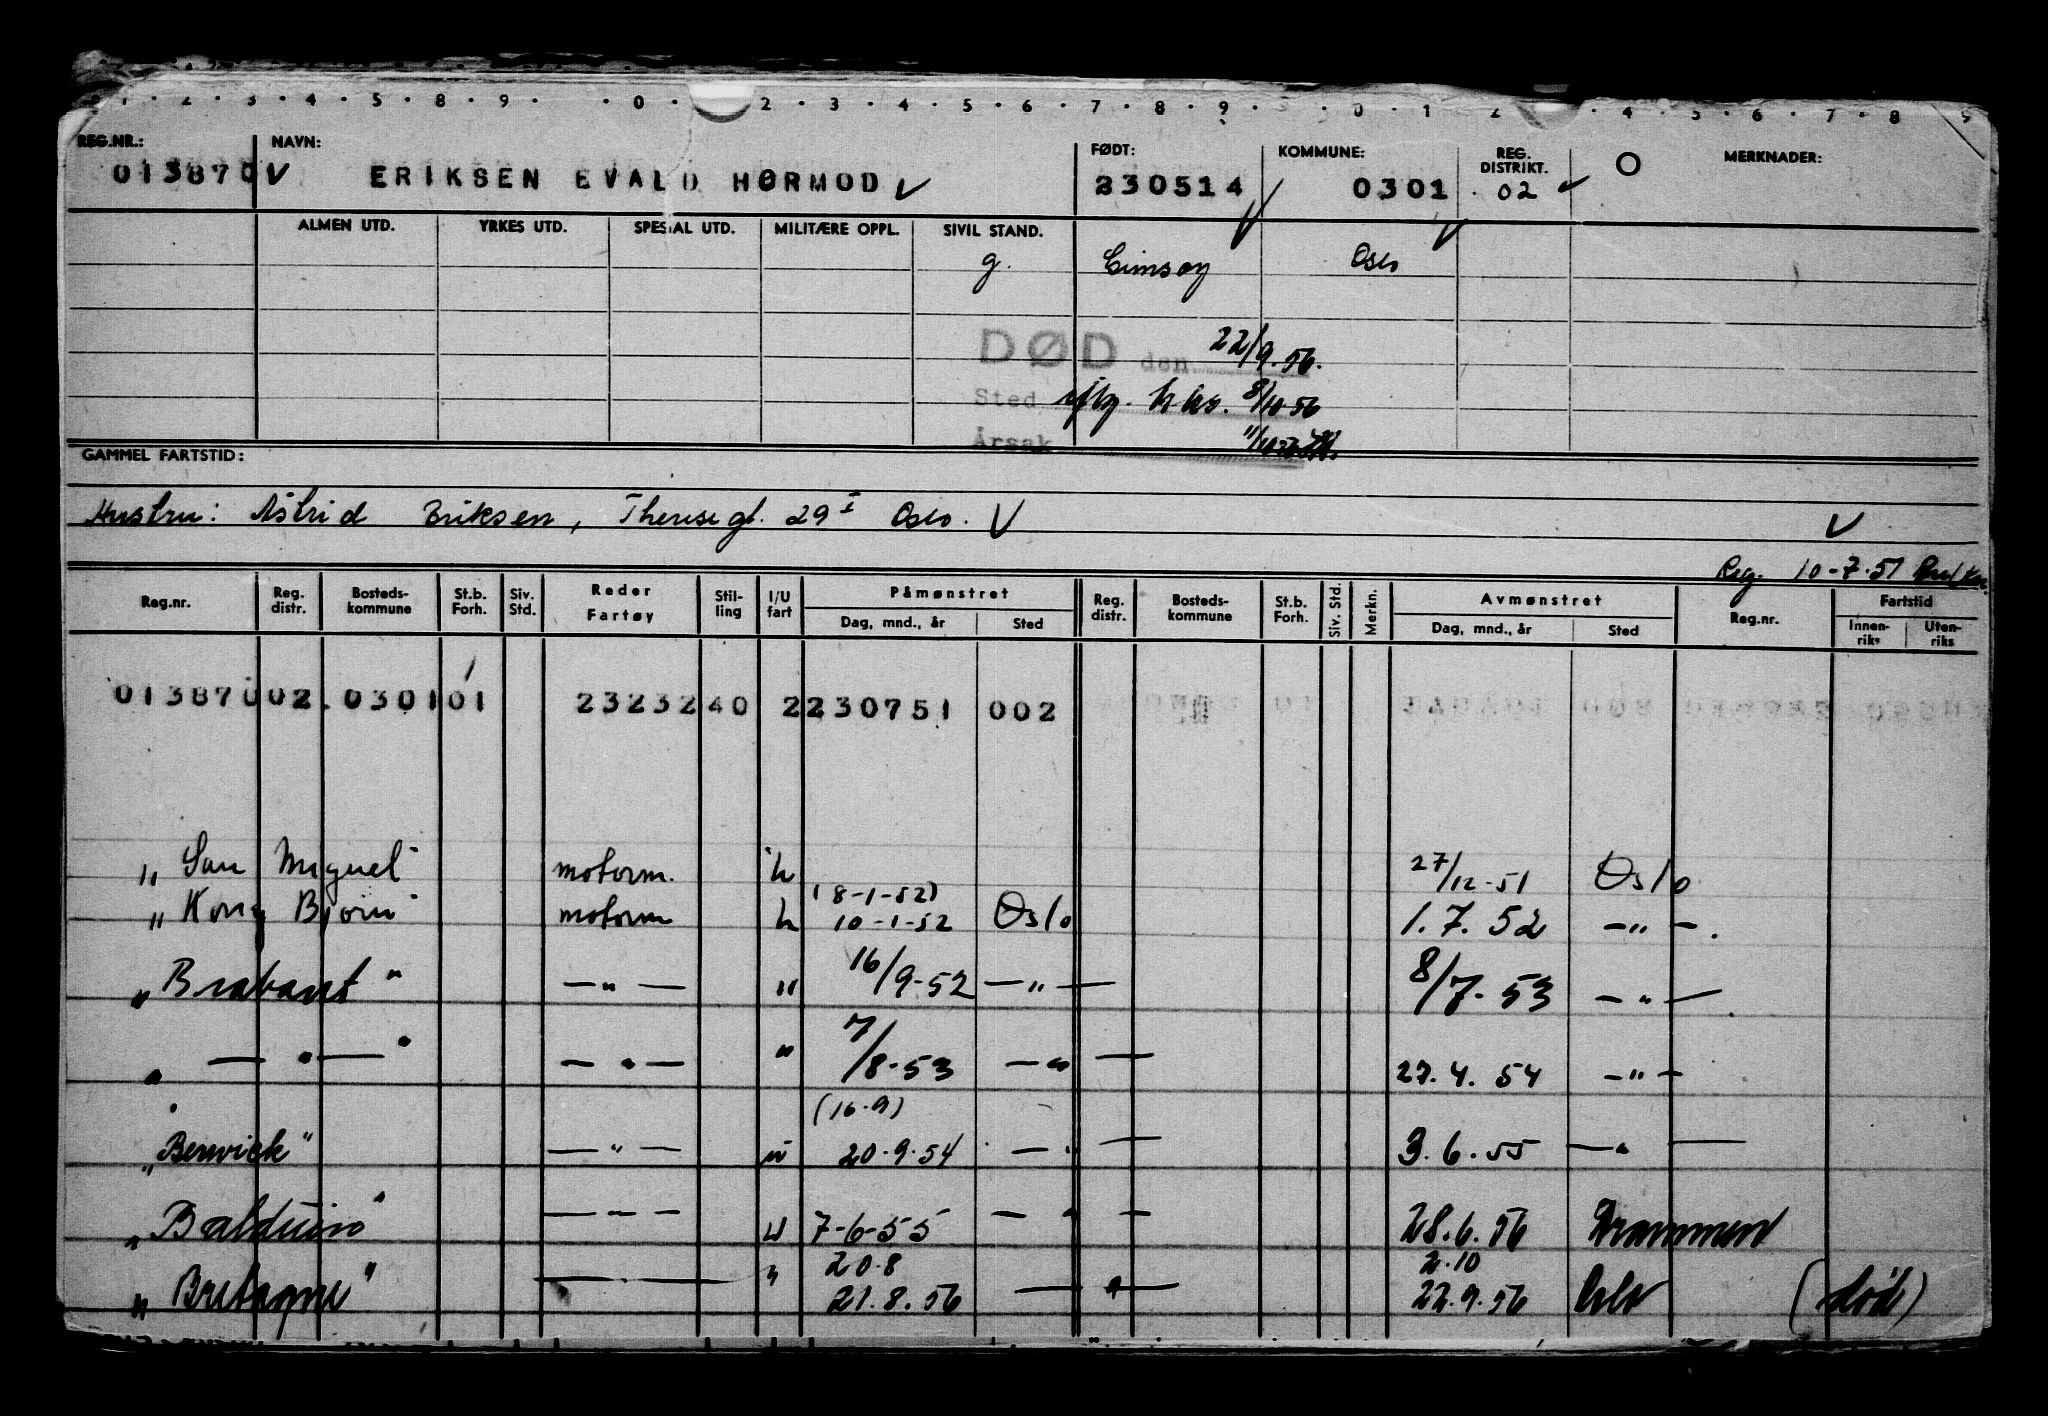 1 · 2 · 3 · 4 · 5 · 8 · 9 · · 0 · 2 · 3 · 4 · 5 · 6 · 7 · 8 · 9 · 0 · 1 · 2 · 4 · 5 · 6 · 7 · 8 · 9
REG.NR.: NAVN: FØDT: KOMMUNE: REG. DISTRIKT. MERKNADER:
013870 ERIKSEN EVALD HØRMOD 230514 0301 02 O
ALMEN UTD. YRKES UTD. SPESIAL UTD. MILITÆRE OPPL. SIVIL STAND.
g. Gimsøy Oslo
DØD den 22/9.56.
Sted 8/10 56
Årsak
GAMMEL FARTSTID:
Hustru: Astrid Eriksen, Theresegt. 29 I Oslo.
Reg. 10-7-51
Reg.nr. Reg. distr. Bosteds-kommune St.b. Forh. Siv. Std. Reder Fartøy Stil-ling I/U fart Påmønstret Dag, mnd., år Sted Reg. distr. Bosteds-kommune St.b. Forh. Siv. Std. Merkn. Avmønstret Dag, mnd., år Sted Reg.nr. Fartstid Innen-riks Uten-riks
013870 02 0301 01 2323240 2 230751 002
"San Miguel" motorm. u 27/12-51 Oslo
(8-1-52)
"Kong Bjørn" motorm u 10-1-52 Oslo 1.7.52 —"—.
"Brabant" —"— " 16/9-52 —"— 8/7-53 —"—
" —"— " —"— " 7/8-53 —"— 27.4.54 —"—
(16.9)
"Berwick" —"— u 20.9.54 —"— 3.6.55 —"—
"Balduin" —"— u 7-6-55 —"— 28.6.56 Drammen
20.8 2.10
"Bretagne" —"— " 21.8.56 —"— 22.9.56 Oslo (død)